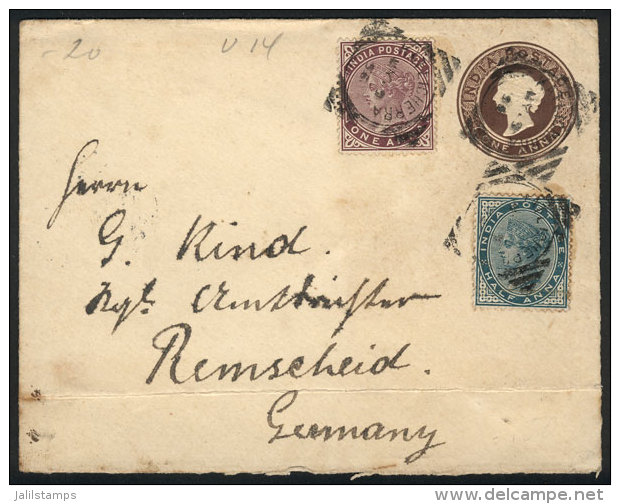 -20
U 14
INDIA POSTAGE
ONE ANNA
INDIA POSTAGE
ONE ANNA
INDIA POSTAGE
HALF ANNA
Herrn
G. Kind.
Kgl. Amtsrichter
Remscheid.
Germany
jalilstamps
www.delcampe.net